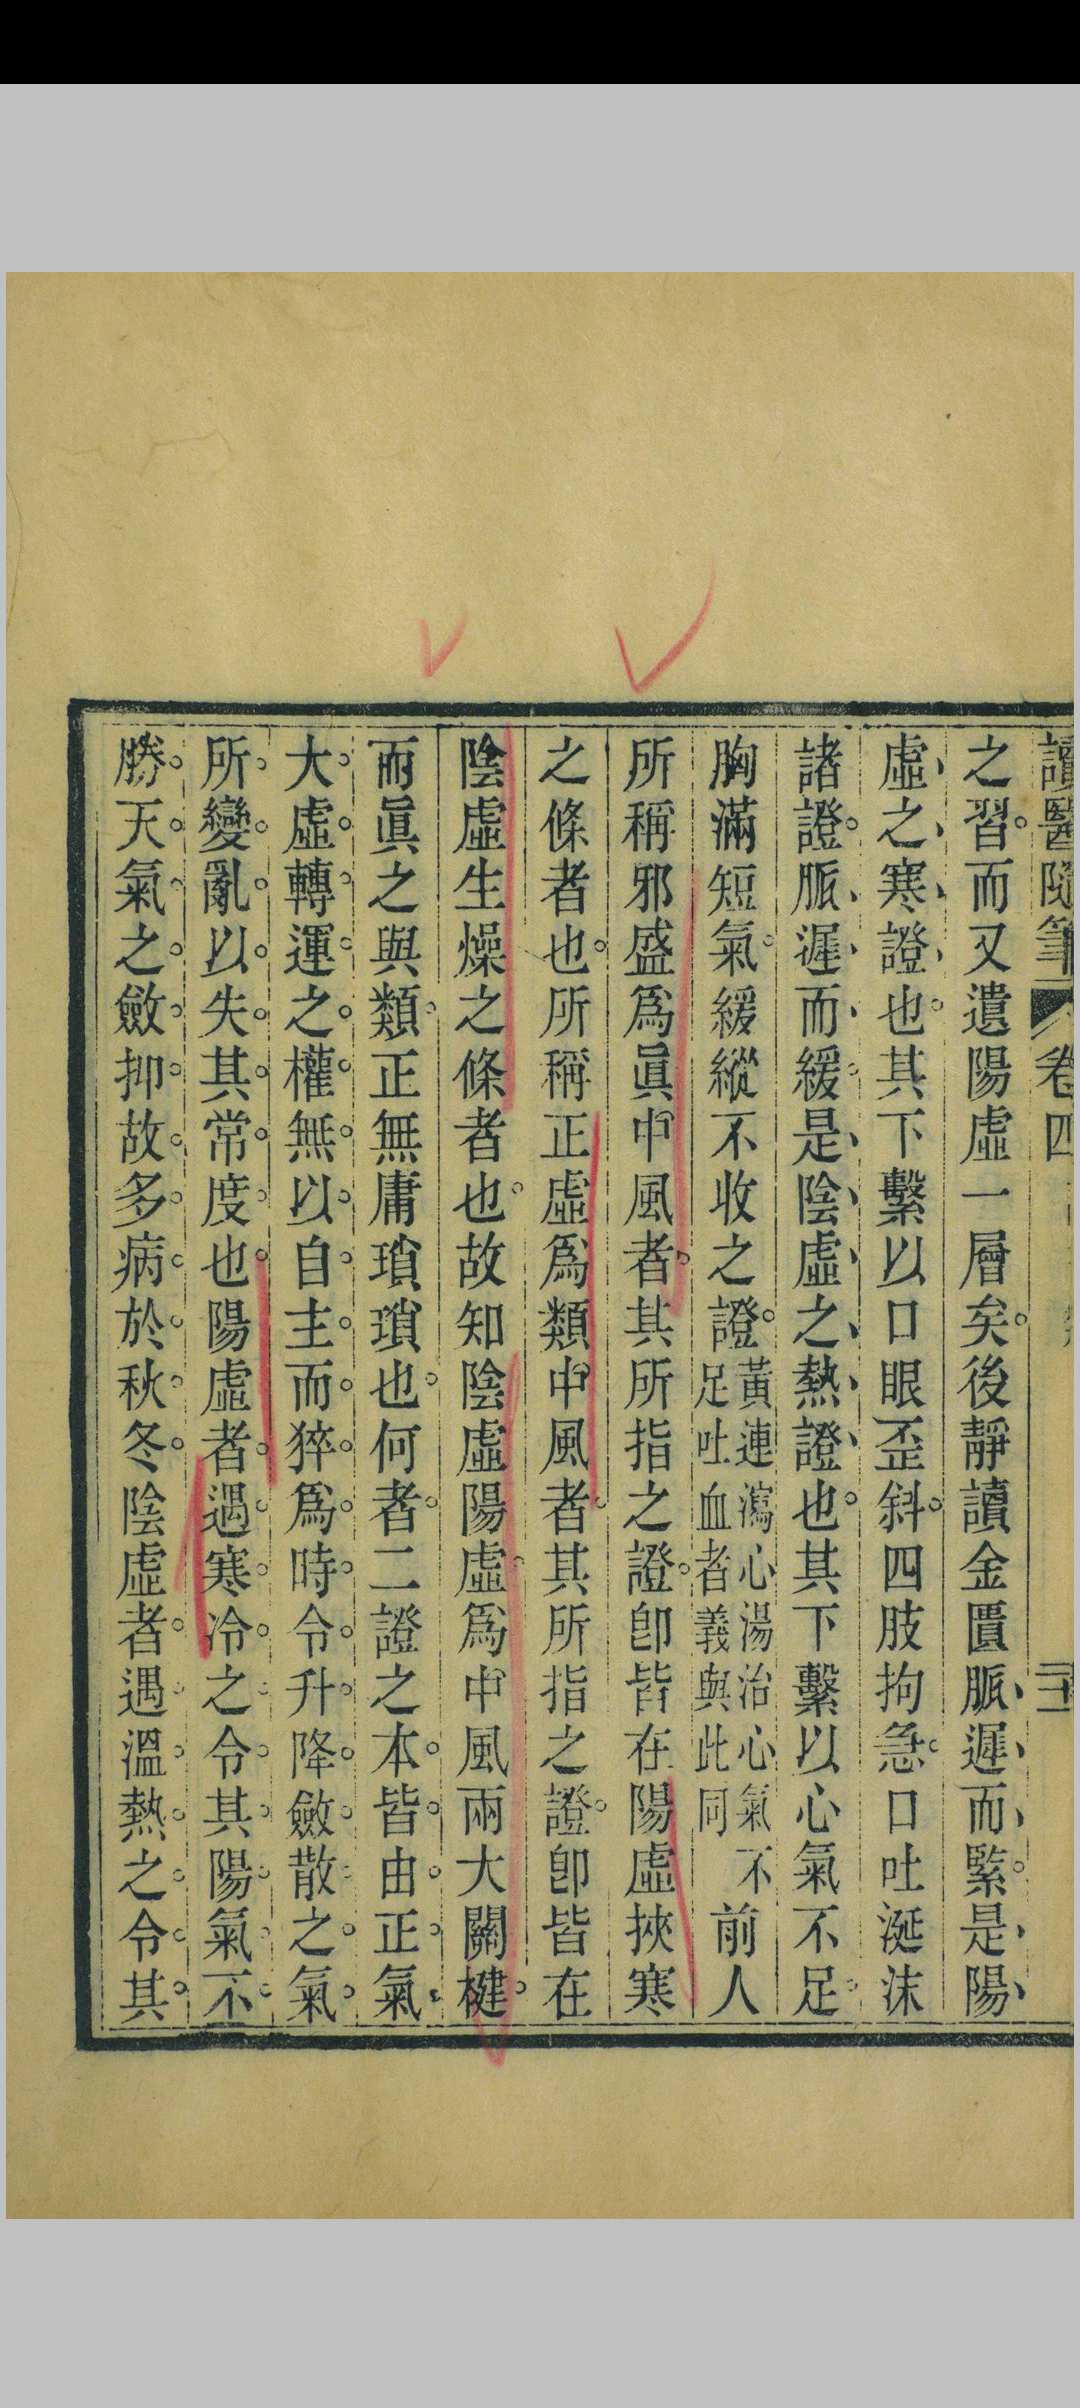 讀醫隨筆 卷四
之習而又遺陽虛一層矣後靜讀金匱脈遲而緊是陽
虛之寒證也其下繫以口眼歪斜四肢拘急口吐涎沫
諸證脈遲而緩是陰虛之熱證也其下繫以心氣不足
胸滿短氣緩縱不收之證黃連瀉心湯治心氣不足吐血者義與此同前人
所稱邪盛爲眞中風者其所指之證卽皆在陽虛挾寒
之條者也所稱正虛爲類中風者其所指之證卽皆在
陰虛生燥之條者也故知陰虛陽虛爲中風兩大關楗
而眞之與類正無庸瑣瑣也何者二證之本皆由正氣
大虛轉運之權無以自主而猝爲時令升降斂散之氣
所變亂以失其常度也陽虛者遇寒冷之令其陽氣不
勝天氣之斂抑故多病於秋冬陰虛者遇溫熱之令其